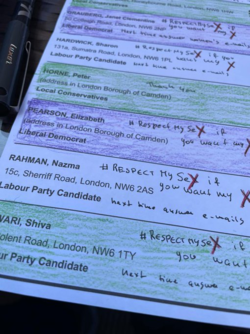 #RESPECT My SeX if
Road, London, NW
Liberal Democrat
HARDWICK, Sharon #Respect My SeX if
Road, London, NW6 want my X
Labour Party Candidate next time answer e-mails
THORNE, Peter Thank You
(address in London Borough of Camden)
Local Conservatives
PEARSON, Elizabeth #Respect My SeX if
(address in London Borough of Camden) you want my X
Liberal Democrat
RAHMAN, Nazma #RESPECT My SeX if
15c, Sherriff Road, London, NW6 2AS you want my X
Labour Party Candidate next time answer e-mails
WARI, Shiva #RESPECT My SeX if
olent Road, London, NW6 1TY you want
ur Party Candidate next time answer